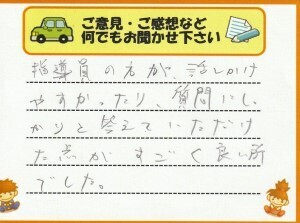 ご意見・ご感想など
何でもお聞かせ下さい
指導員の方が、話しかけ
やすかったり、質問にしっ
かりと答えていただけ
た点がすごく良い所
でした。